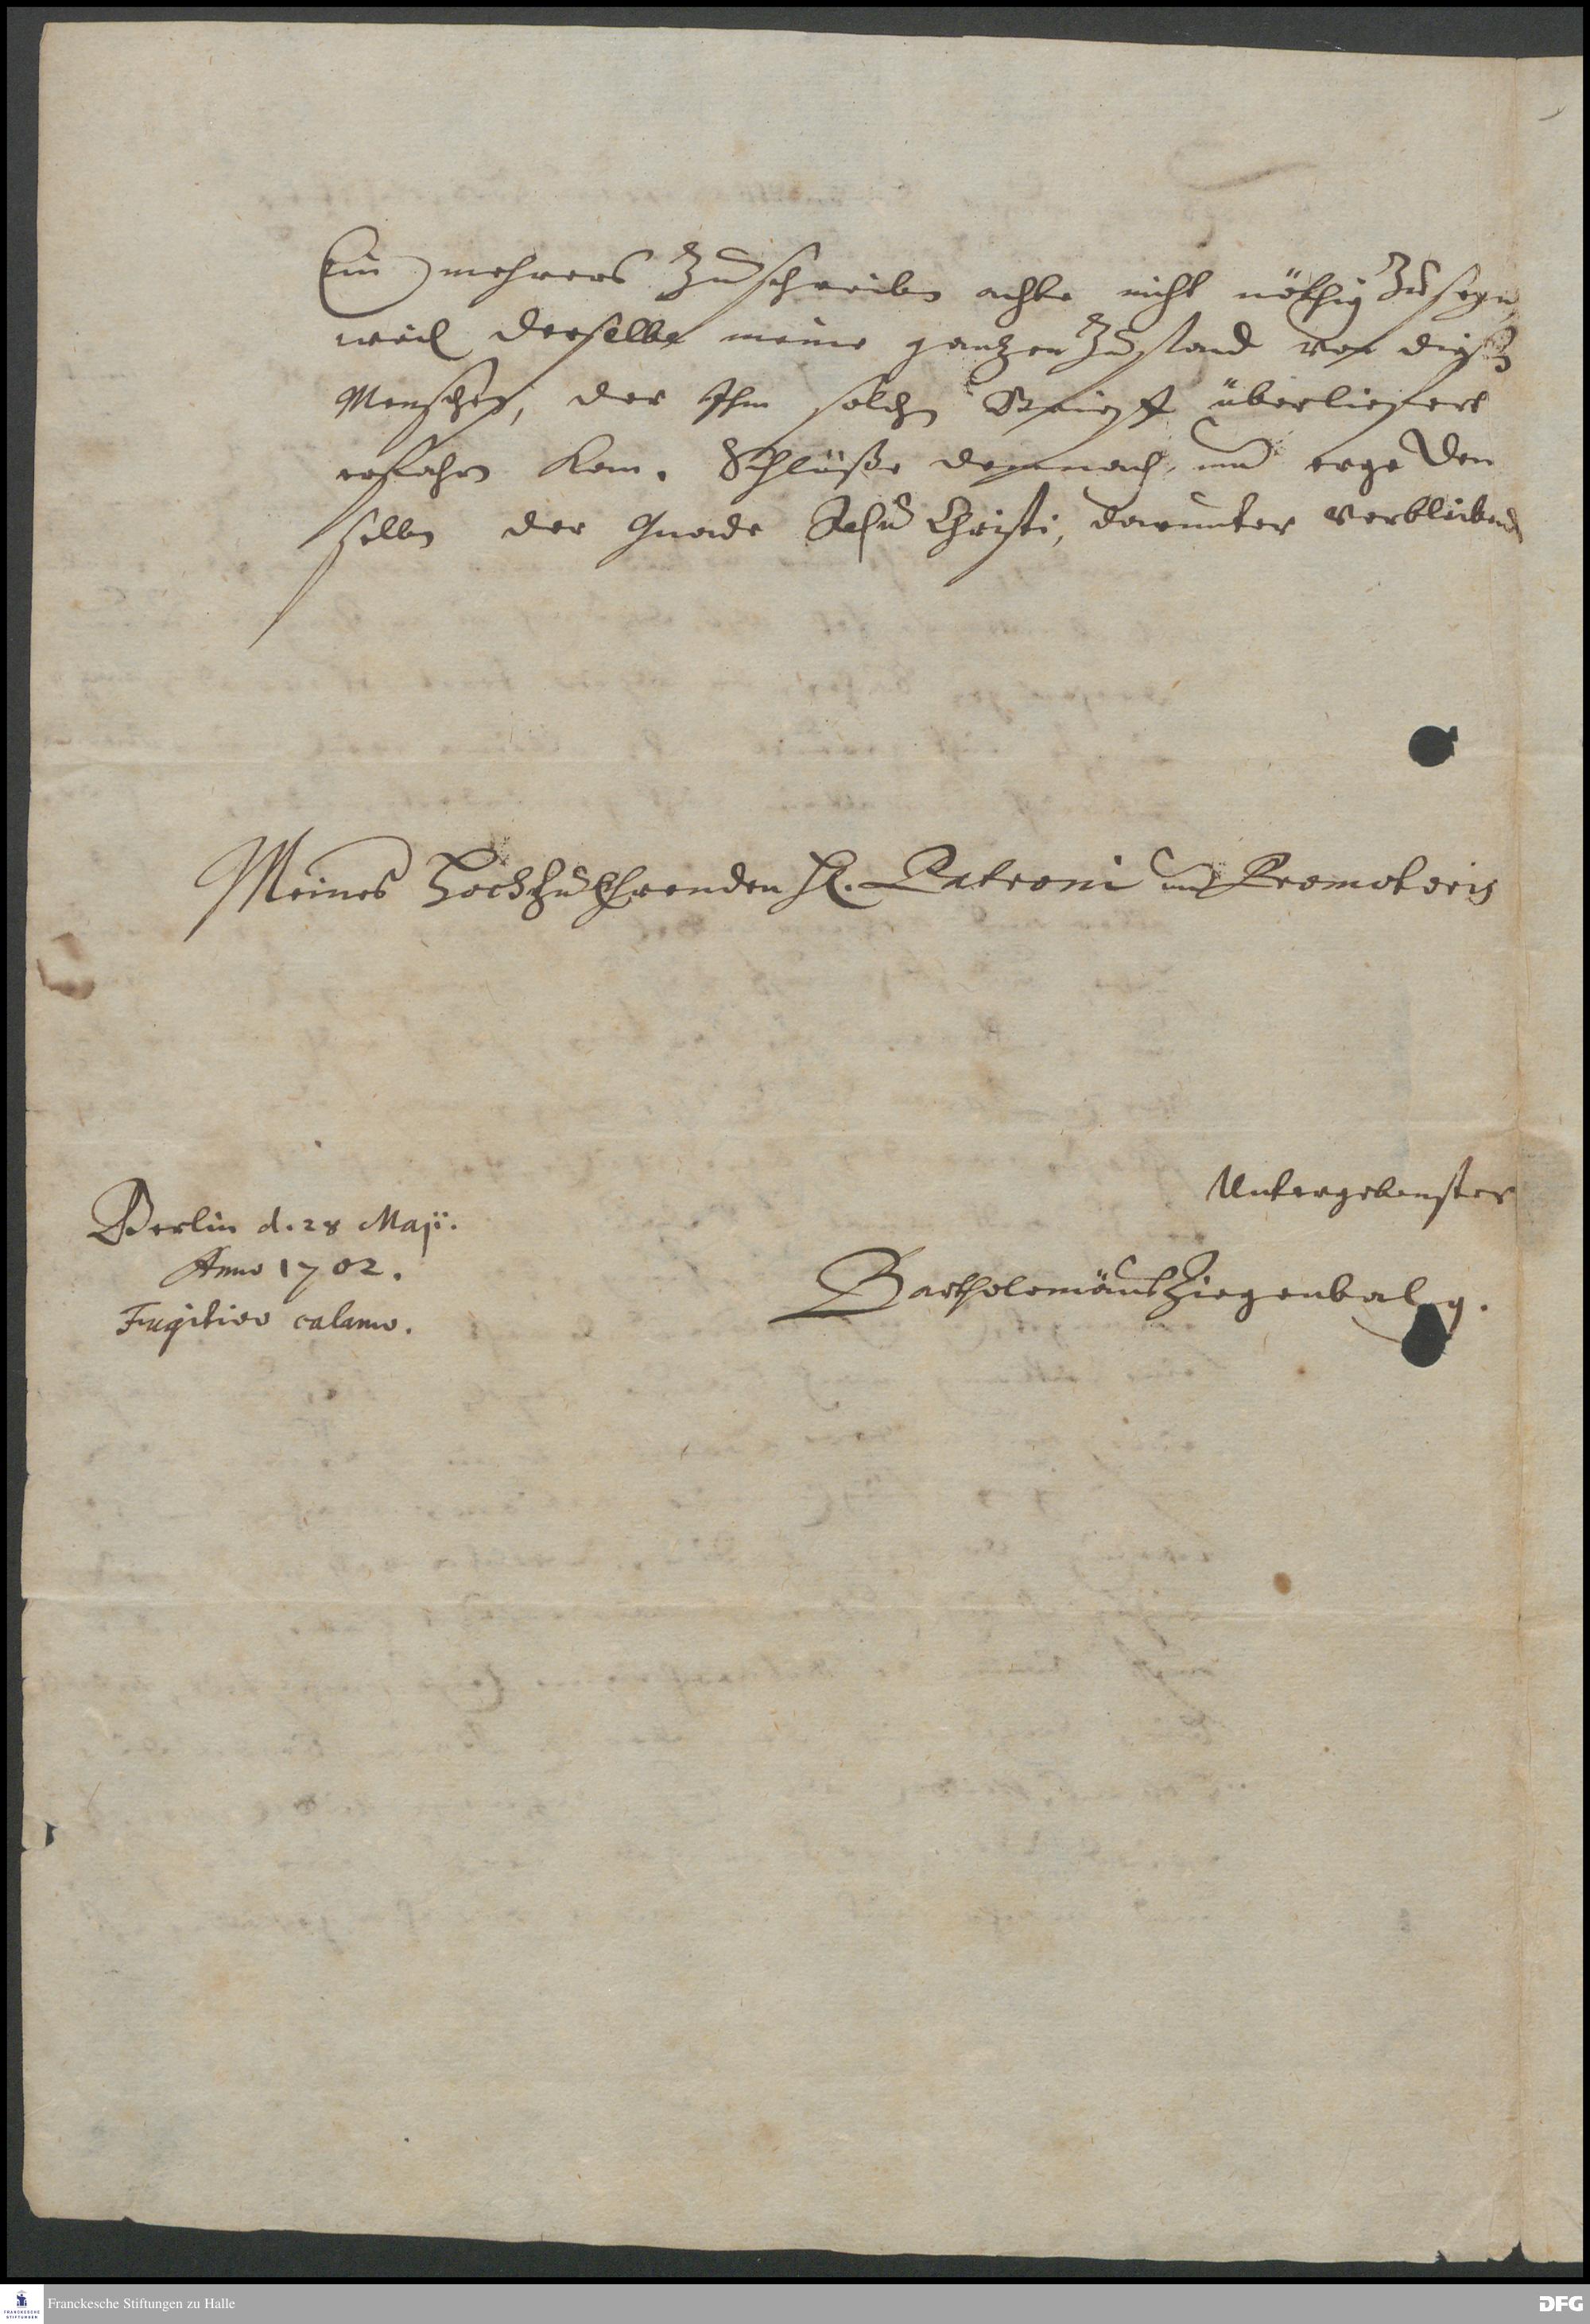 Ein mehrers zu schreiben achte nicht nöthig zu seyn,
weil derselbe meine gantzen Zustand von diesen
Menschen, der Ihm solche Schrifft überliefert
erfahrn kan. Schlüße demnach und ergebe den
selben der Gnade Jesu Christi, darunter verbleibend
Meines Hochzu Ehrenden H. Patroni und Promotoris
Untergebenster
Berlin d. 28 Maji.
Anno 1702.
Fugitivo calamo.
Bartholomäus Ziegenbalg.
Franckesche Stiftungen zu Halle
FRANCKESCHE
STIFTUNGEN
DFG